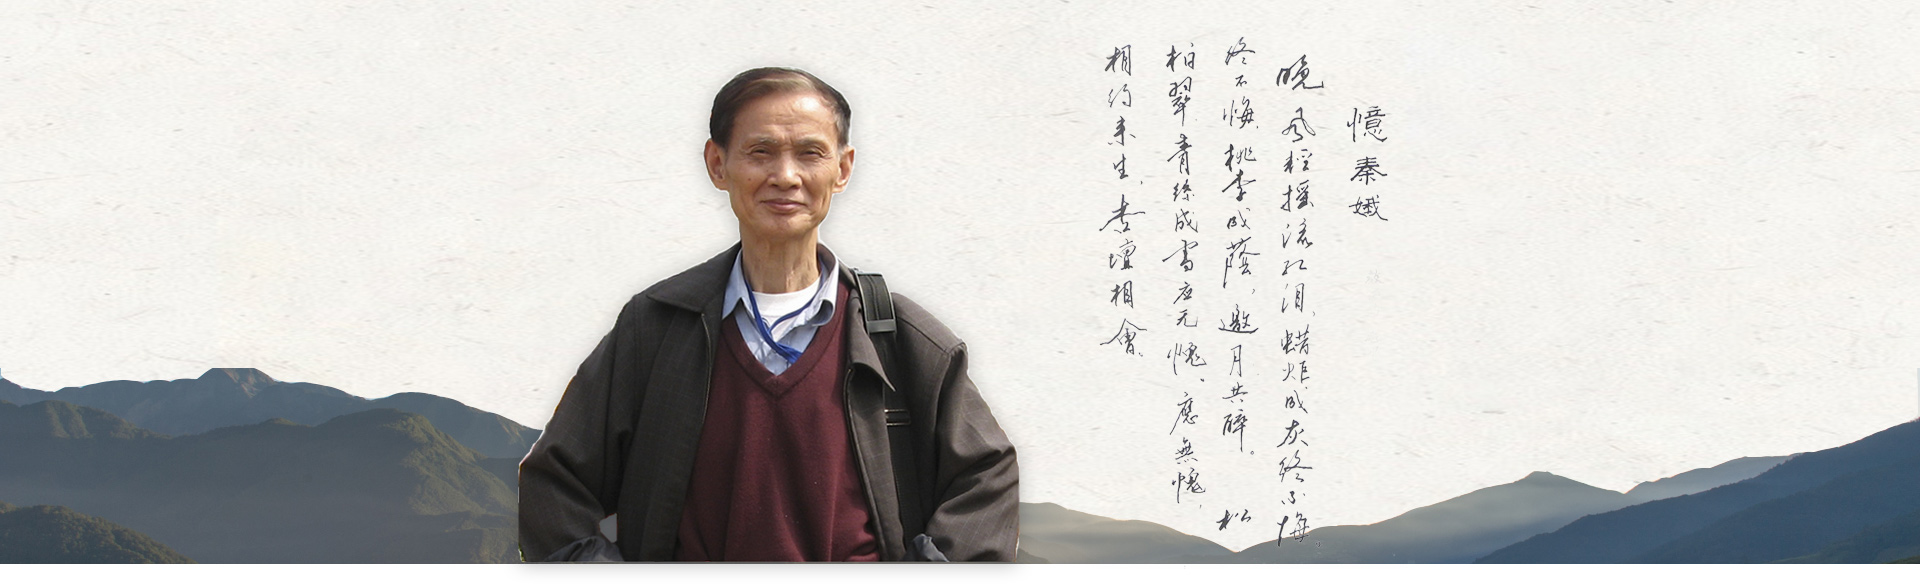 憶秦娥
晚風輕搖流红泪，蜡炬成灰終不悔。
终不悔，桃李成蔭，邀月共醉。　松
柏翠青絲成雪应无愧。應無愧，
相约来生，杏壇相會。